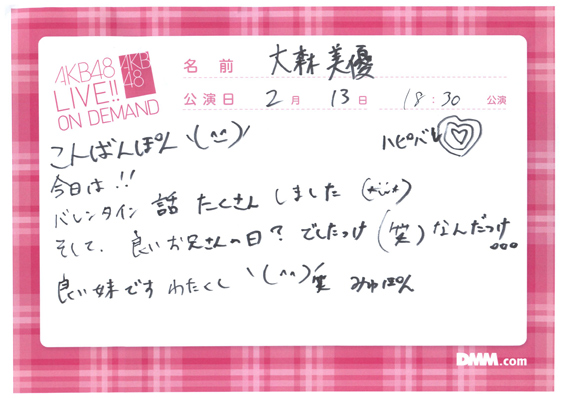 AKB48
LIVE!!
ON DEMAND
AKB
48
名前 大森美優
公演日 2月 13日 18:30 公演
こんばんぽん \(^^)/
ハピバ
今日は!!
バレンタイン 話 たくさん しました (*^^*)
そして、良いお兄さんの日? でしたっけ (笑) なんだっけ 。。。
良い妹です わたくし \(^^)/笑 みゆぽん
DMM.com